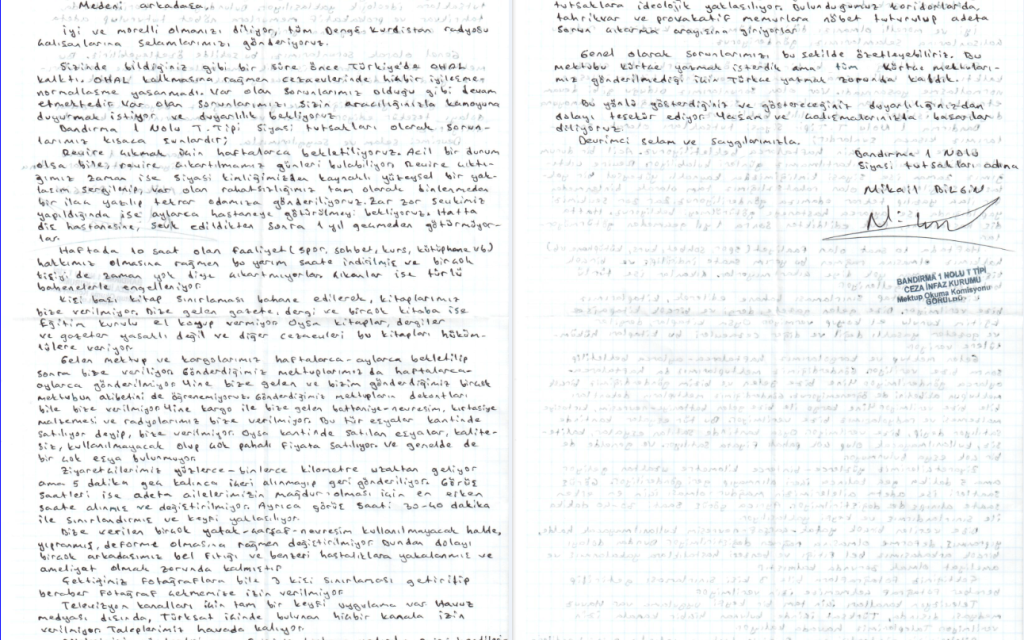 Medeni arkadaşa,
İyi ve morelli olmanızı diliyor, tüm Denge Kurdistan radyosu
çalışanlarına selamlarımızı gönderiyoruz.
Sizinde bildiğiniz gibi bir süre önce Türkiye'de OHAL
kalktı. OHAL kalkmasına rağmen cezaevlerinde hiçbir iyileşme,
normalleşme yaşanmadı. Var olan sorunlarımız olduğu gibi devam
etmektedir. Var olan sorunlarımızı, sizin aracılığınızla kamoyuna
duyurmak istiyor ve duyarlılık bekliyoruz.
Bandırma 1 Nolu T. Tipi siyasi tutsakları olarak sorun-
larımız kısaca şunlardır;
Revire çıkmak için haftalarca bekletiliyoruz. Acil bir durum
olsa bile revire çıkartılmamız günleri bulabiliyor. Revire çıktı-
ğımız zaman ise siyasi kimliğimizden kaynaklı yüzeysel bir yak-
laşım sergilenip, var olan rahatsızlığımız tam olarak dinlenmeden
bir ilaç yazılıp tekrar odamıza gönderiliyoruz. Zar zor sevkimiz
yapıldığında ise aylarca hastaneye götürülmeyi bekliyoruz. Hatta
diş hastanesine, sevk edildikten sonra 1 yıl geçmeden götürmüyor-
lar.
Haftada 10 saat olan faaliyet (spor, sohbet, kurs, kütüphane vb)
hakkımız olmasına rağmen bu yarım saate indirilmiş ve birçok
kişiyi de zaman yok diye çıkartmıyorlar. Çıkanlar ise türlü
bahenelerle engelleniyor.
Kişi başı kitap sınırlaması bahane edilerek, kitaplarımız
bize verilmiyor. Bize gelen gazete, dergi ve birçok kitaba ise
Eğitim kurulu el koyup vermiyor. Oysa kitaplar, dergiler
ve gazeteler yasaklı değil ve diğer cezaevleri bu kitapları hüküm-
lülere veriyor.
Gelen mektup ve kargolarımız haftalarca-aylarca bekletilip
sonra bize veriliyor. Gönderdiğimiz mektuplarımız da haftalarca-
aylarca gönderilmiyor. Yine bize gelen ve bizim gönderdiğimiz birçok
mektubun akibetini de öğrenemiyoruz. Gönderdiğimiz mektupların dekontları
bile bize verilmiyor. Yine kargo ile bize gelen battaniye-nevresim, kırtasiye
malzemesi ve radyolarımız bize verilmiyor. Bu tür eşyalar kantinde
satılıyor deyip, bize verilmiyor. Oysa kantinde satılan eşyalar, kalite-
siz, kullanılmayacak olup çok pahalı fiyata satılıyor. Ve genelde de
bir çok eşya bulunmuyor.
Ziyaretçilerimiz yüzlerce-binlerce kilometre uzaktan geliyor
ama 5 dakika geç kalınca içeri alınmayıp geri gönderiliyor. Görüş
saatleri ise adeta ailelerimizin mağdur olması için en erken
saate alınmış ve değiştirilmiyor. Ayrıca görüş saati 30-40 dakika
ile sınırlandırmış ve keyfi yaklaşılıyor.
Bize verilen birçok yatak-çarşaf-nevresim kullanılmayacak halde,
yıpranmış, deforme olmasına rağmen değiştirilmiyor. Bundan dolayı
birçok arkadaşımız bel fıtığı ve benzeri hastalıklara yakalanmış ve
ameliyat olmak zorunda kalmıştır.
Çektiğimiz fotoğraflara bile 3 kişi sınırlaması getirilip
beraber fotoğraf çekmemize izin verilmiyor.
Televizyon kanalları için tam bir keyfi uygulama var. Havuz
medyası dışında, Türksat içinde bulunan hiçbir kanala izin
verilmiyor. Taleplerimiz havada kalıyor.
tutsaklara ideolojik yaklaşılıyor. Bulunduğumuz koridorlarda,
tahrikvar ve provakatif memurlara nöbet tutturulup adeta
sorun çıkarma arayışına giriyorlar.
Genel olarak sorunlarımızı, bu şekilde özetleyebiliriz. Bu
mektubu Kürtçe yazmak isterdik ama tüm Kürtçe mektupları-
mız gönderilmediği için Türkçe yazmak zorunda kaldık.
Bu yönlü gösterdiğiniz ve göstereceğiniz duyarlılığınızdan
dolayı teşekür ediyor. Yaşam ve çalışmalarınızda başarılar
diliyoruz.
Devrimci selam ve saygılarımızla.
Bandırma 1 Nolu
Siyasi tutsakları adına
Mikail BİLGİN
BANDIRMA 1 NOLU T TİPİ
CEZA İNFAZ KURUMU
Mektup Okuma Komisyonu
GÖRÜLDÜ